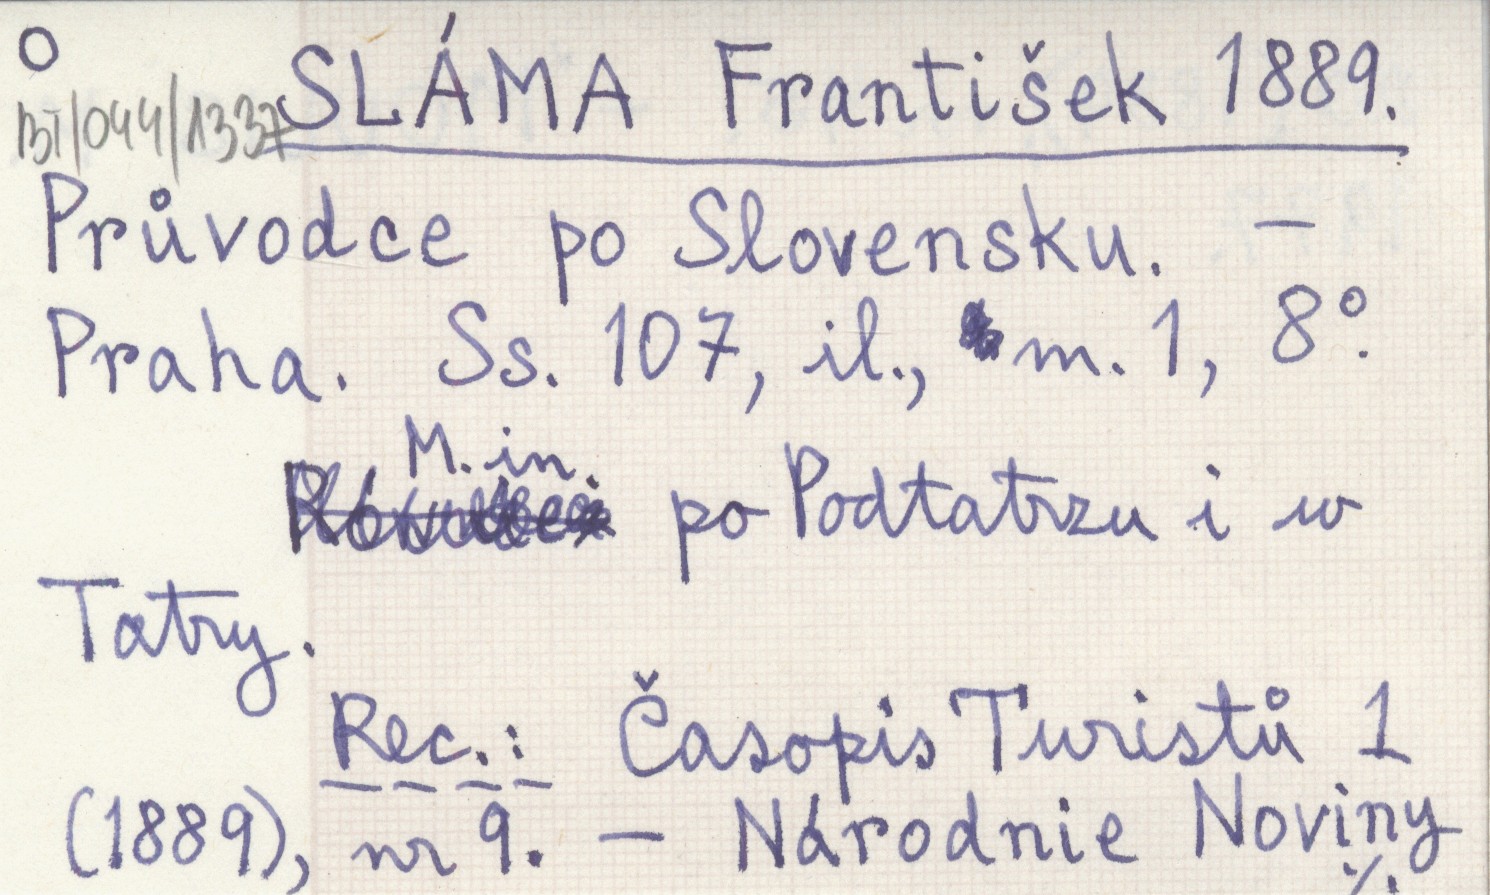 O
BT/044/1337
SLÁMA František 1889.
Průvodce po Slovensku. —
Praha. Ss. 107, il., m. 1, 8°.
M. in.
po Podtatrzu i w
Tatry.
Rec.: Časopis Turistů 1
(1889), nr 9. — Národnie Noviny
./.